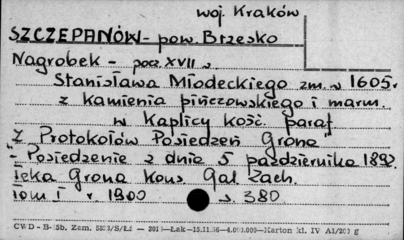 woj. Kraków
SZCZEPANÓW - pow. Brzesko
Nagrobek - pocz. XVII w
Stanisława Młodeckiego zm. w 1605 r
z kamienia pińczowskiego i marm.
w Kaplicy kośc. paraf
"Z Protokołów Posiedzeń Grona"
- Posiedzenie z dnia 5 października 189
Teka Grona Kons. Gal Zach.
Tom I r. 1900 s. 380
CWD - B- Zem. 15.11.56 - 4.000.000 - Karton kl. IV A1/200 g